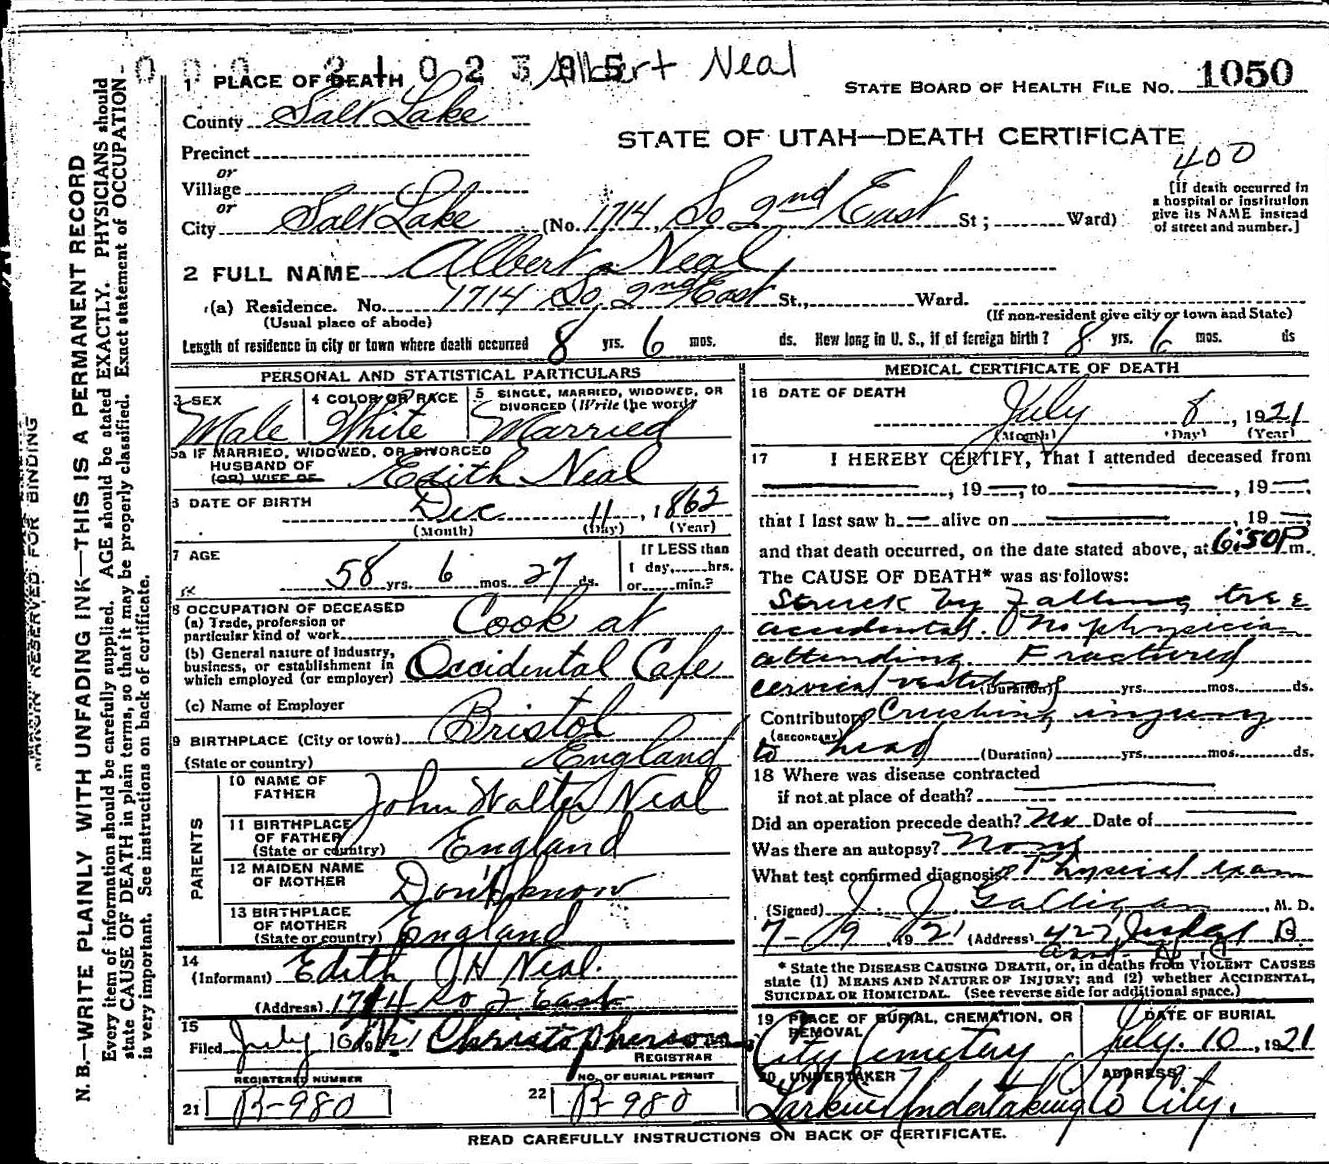 Albert Neal
1 PLACE OF DEATH
STATE BOARD OF HEALTH FILE No. 1050
County Salt Lake
STATE OF UTAH—DEATH CERTIFICATE
Precinct
400
or
Village
or
City Salt Lake (No. 1714 So 2nd East St; Ward)
[If death occurred in
a hospital or institution
give its NAME instead
of street and number.]
2 FULL NAME Albert Neal
(a) Residence. No. 1714 So 2nd East St., Ward.
(Usual place of abode)
(If non-resident give city or town and State)
Length of residence in city or town where death occurred 8 yrs. 6 mos. ds. How long in U. S., if of foreign birth? 8 yrs. 6 mos. ds
PERSONAL AND STATISTICAL PARTICULARS
3 SEX
Male
4 COLOR OR RACE
White
5 SINGLE, MARRIED, WIDOWED, OR
DIVORCED (Write the word)
Married
5a IF MARRIED, WIDOWED, OR DIVORCED
HUSBAND OF
(OR) WIFE OF
Edith Neal
6 DATE OF BIRTH
Dec 11, 1862
(Month) (Day) (Year)
7 AGE
58 yrs. 6 mos. 27 ds.
If LESS than
1 day, hrs.
or min.?
8 OCCUPATION OF DECEASED
(a) Trade, profession or
particular kind of work Cook at
(b) General nature of industry,
business, or establishment in
which employed (or employer) Occidental Cafe
(c) Name of Employer
9 BIRTHPLACE (City or town) Bristol
(State or country) England
PARENTS
10 NAME OF
FATHER John Walter Neal
11 BIRTHPLACE
OF FATHER
(State or country) England
12 MAIDEN NAME
OF MOTHER Don't know
13 BIRTHPLACE
OF MOTHER
(State or country) England
14
(Informant) Edith J H Neal.
(Address) 1714 So 2 East
15
Filed July 10 1921 Christopherson
REGISTRAR
REGISTERED NUMBER
21 B-980
NO. OF BURIAL PERMIT
22 B-980
MEDICAL CERTIFICATE OF DEATH
16 DATE OF DEATH
July 8, 1921
(Month) (Day) (Year)
17 I HEREBY CERTIFY, That I attended deceased from
, 19 , to , 19
that I last saw h alive on , 19
and that death occurred, on the date stated above, at 6:50P m.
The CAUSE OF DEATH* was as follows:
Struck by falling tree
accidental. No physician
attending. Fractured
cervical vertebrae (Duration) yrs. mos. ds.
Contributory Crushing injury
(SECONDARY)
to head (Duration) yrs. mos. ds.
18 Where was disease contracted
if not at place of death?
Did an operation precede death? No Date of
Was there an autopsy? None
What test confirmed diagnosis? Physical exam
(Signed) J. J. Galligan, M. D.
7-9 1921 (Address) 427 Judge B
* State the DISEASE CAUSING DEATH, or, in deaths from VIOLENT CAUSES
state (1) MEANS AND NATURE OF INJURY; and (2) whether ACCIDENTAL,
SUICIDAL OR HOMICIDAL. (See reverse side for additional space.)
19 PLACE OF BURIAL, CREMATION, OR
REMOVAL
City Cemetery
DATE OF BURIAL
July. 10, 1921
20 UNDERTAKER
Larkin Undertaking Co
ADDRESS
City.
READ CAREFULLY INSTRUCTIONS ON BACK OF CERTIFICATE.
MARGIN RESERVED FOR BINDING
N. B.—WRITE PLAINLY WITH UNFADING INK—THIS IS A PERMANENT RECORD
Every item of information should be carefully supplied. AGE should be stated EXACTLY. PHYSICIANS should
state CAUSE OF DEATH in plain terms, so that it may be properly classified. Exact statement of OCCUPATION
is very important. See instructions on back of certificate.